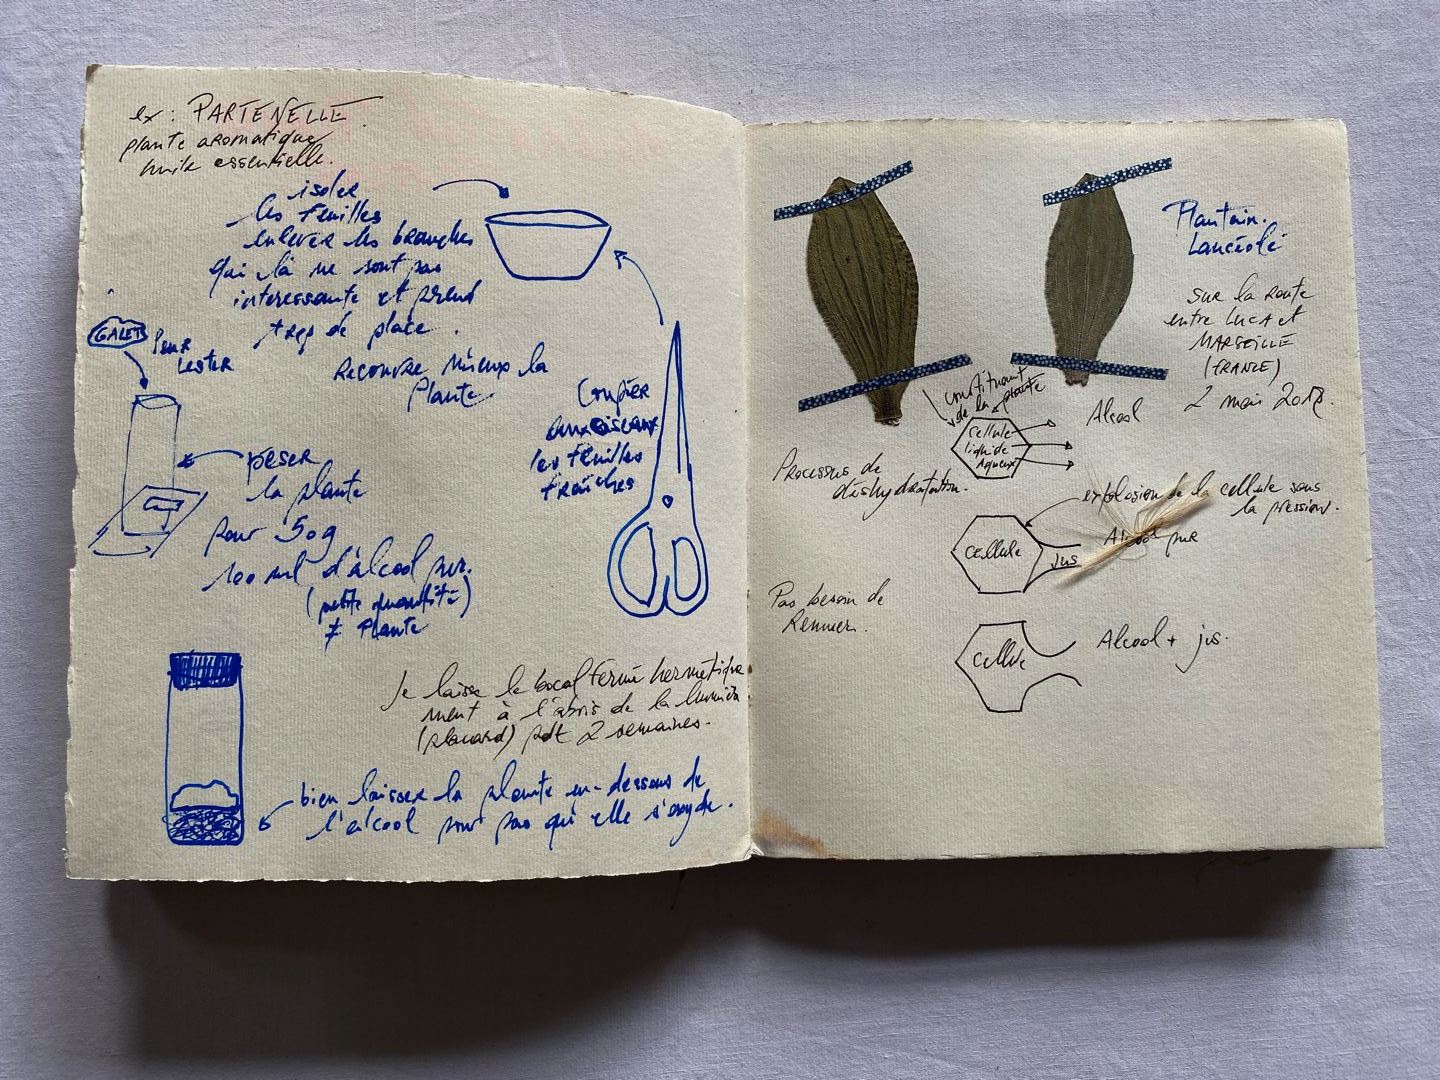 ex : PARTENELLE.
plante aromatique
huile essentielle.
isoler
les feuilles
enlever les branches
qui là ne sont pas
interessante et prend
trop de place.
GALET
Pour
Lester
Recouvre mieux la
Plante
Couper
aux ciseaux
les feuilles
fraîches
peser
la plante
pour 50g
100 ml d'alcool pur.
(petite quantité)
≠ Plante
Je laisse le bocal fermé hermétique
ment à l'abris de la lumièr
(placard) pdt 2 semaines.
bien laisser la plante en-dessous de
l'alcool pour pas qu'elle s'oxyde.
Plantain.
Lancéolé
sur la route
entre LUCA et
MARSEILLE
(FRANCE)
2 mai
constituant
de la plante
Alcool
cellule
liquide
Aqueux
Processus de
déshydratation.
explosion de la cellule sous
la pression.
cellule
jus
Alcool pur
Pas besoin de
Remuer.
cellule
Alcool + jus.